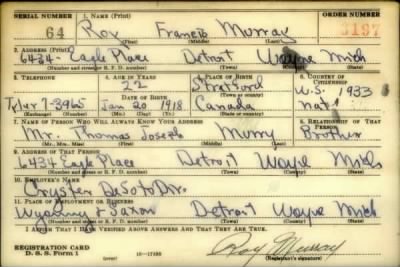 SERIAL NUMBER 1. NAME (Print) ORDER NUMBER
64 Roy Francis Murray
(First) (Middle) (Last)
2. ADDRESS (Print)
6434- Eagle Place Detroit Wayne Mich
(Number and street or R. F. D. number) (Town) (County) (State)
3. TELEPHONE 4. AGE IN YEARS 5. PLACE OF BIRTH 6. COUNTRY OF CITIZENSHIP
22 Stratford U.S. 1933
DATE OF BIRTH (Town or county)
Tyler 7-3965 Jan 20 1918 Canada nat'l
(Exchange) (Number) (Mo.) (Day) (Yr.) (State or country)
7. NAME OF PERSON WHO WILL ALWAYS KNOW YOUR ADDRESS 8. RELATIONSHIP OF THAT PERSON
Mr. Thomas Joseph Murry Brother
(Mr., Mrs., Miss) (First) (Middle) (Last)
9. ADDRESS OF THAT PERSON
6434 Eagle Place Detroit Wayne Mich
(Number and street or R. F. D. number) (Town) (County) (State)
10. EMPLOYER'S NAME
DeSoto Div.
11. PLACE OF EMPLOYMENT OR BUSINESS
Detroit Wayne Mich
(Number and street or R. F. D. number) (Town) (County) (State)
I AFFIRM THAT I HAVE VERIFIED ABOVE ANSWERS AND THAT THEY ARE TRUE.
REGISTRATION CARD
D. S. S. Form 1 (over) Roy Murray
(Registrant's signature)